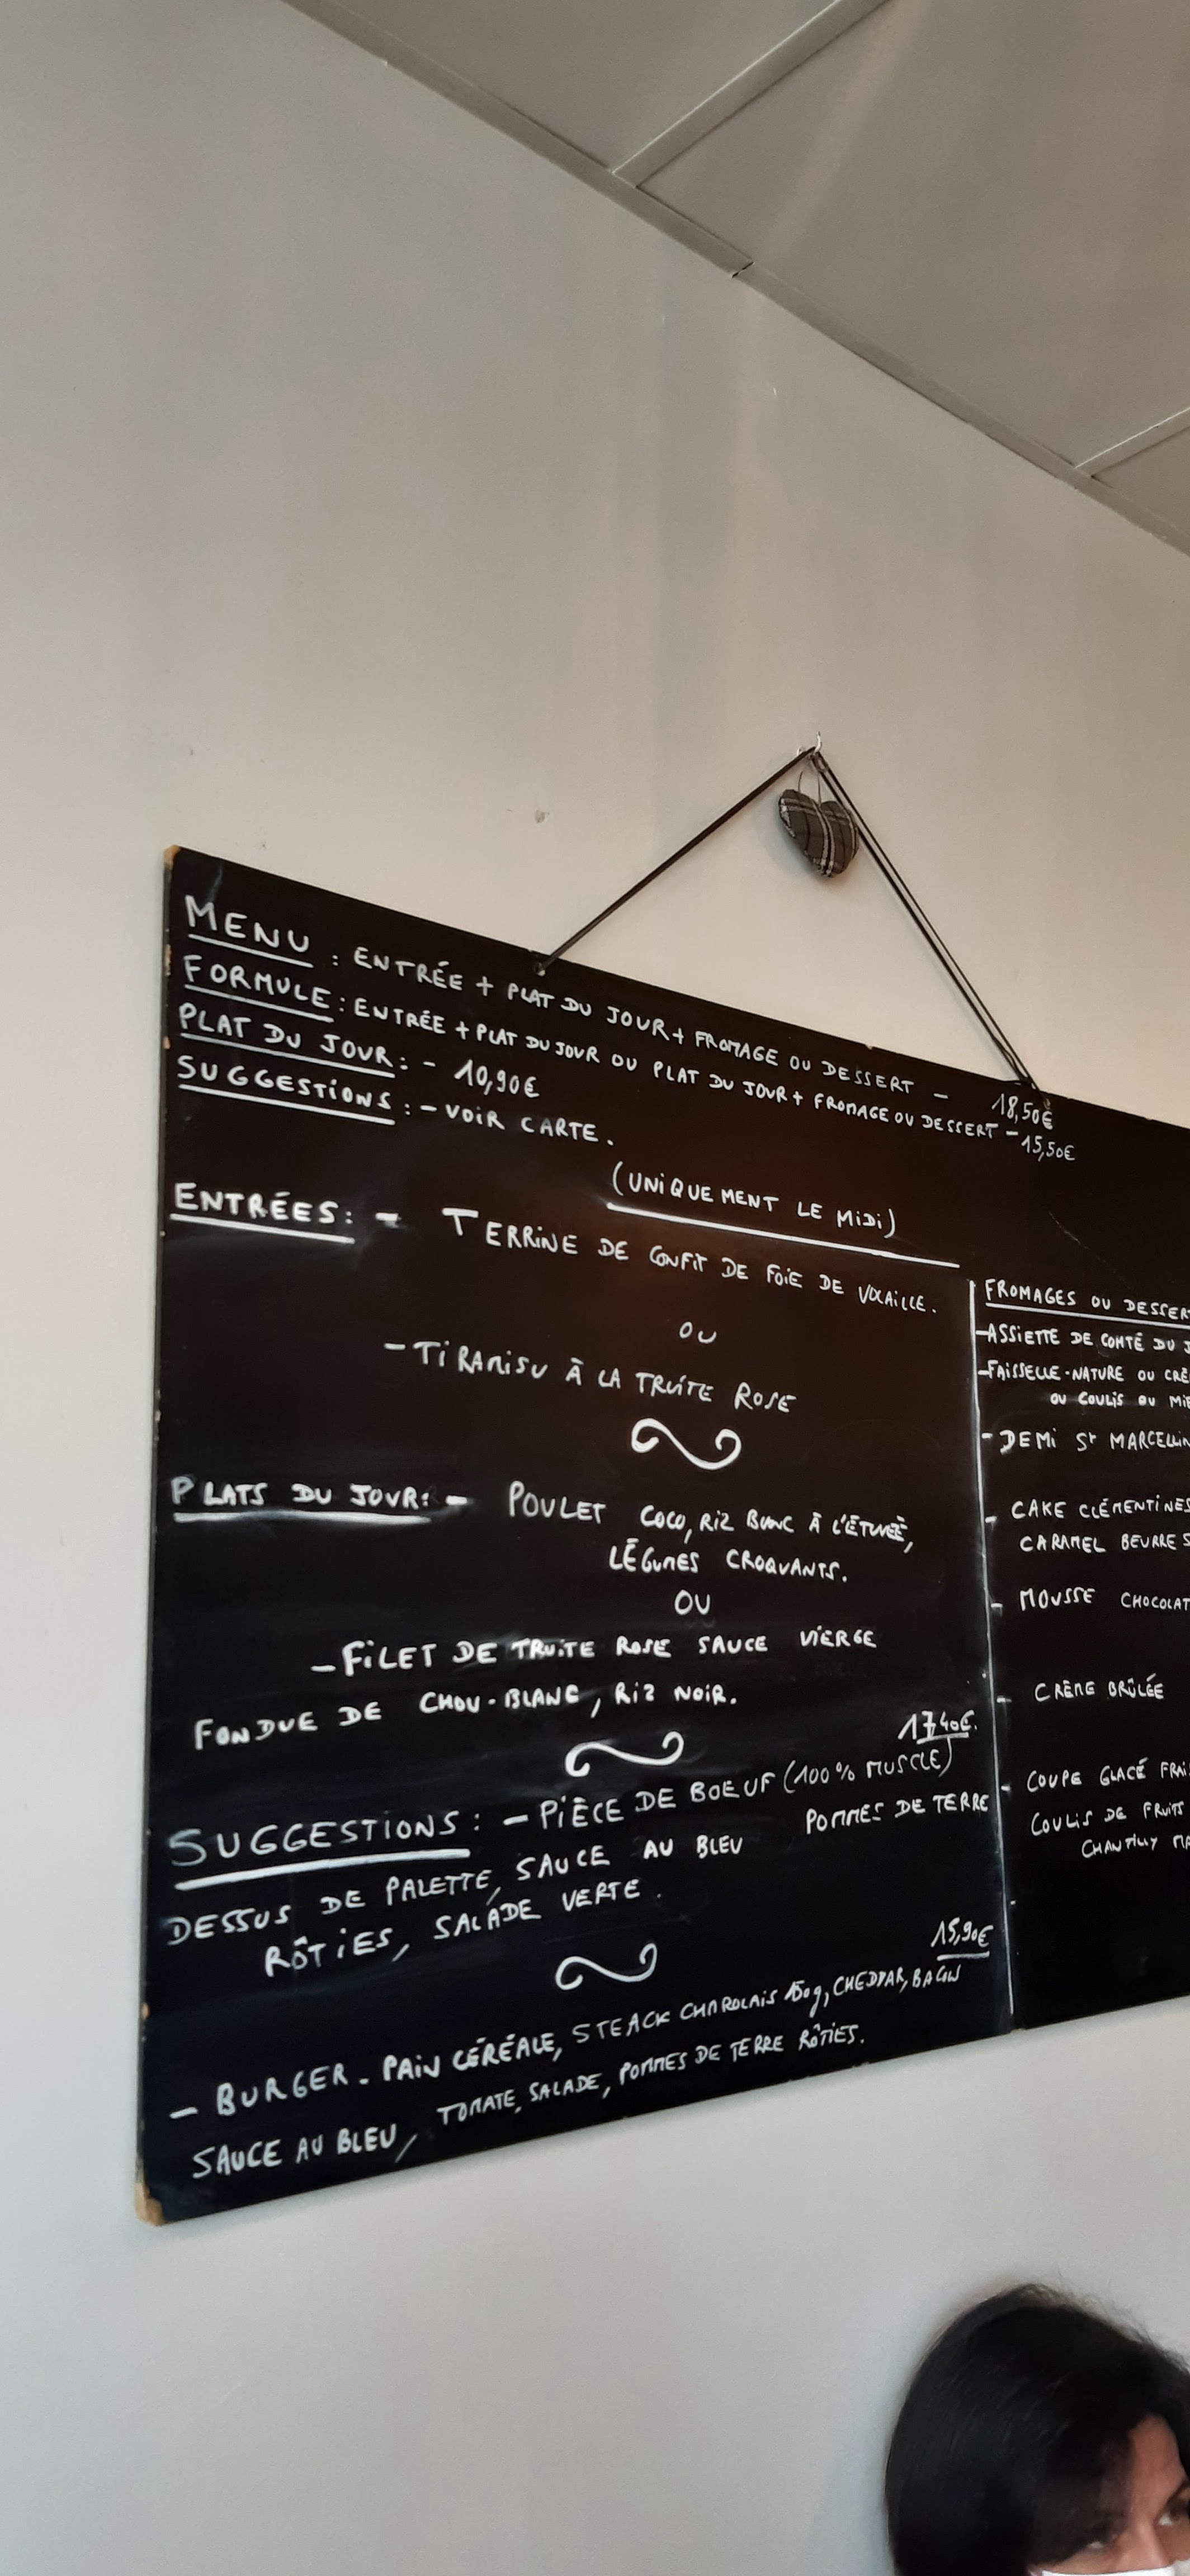 MENU : ENTRÉE + PLAT DU JOUR + FROMAGE OU DESSERT - 18,50€
FORMULE : ENTRÉE + PLAT DU JOUR OU PLAT DU JOUR + FROMAGE OU DESSERT - 15,50€
PLAT DU JOUR : - 10,90€
SUGGESTIONS : - VOIR CARTE.
(UNIQUEMENT LE MIDI)
ENTRÉES : - TERRINE DE CONFIT DE FOIE DE VOLAILLE.
OU
- TIRAMISU À LA TRUITE ROSE
PLATS DU JOUR : - POULET COCO, RIZ BLANC À L'ÉTUVÉE,
LÉGUMES CROQUANTS.
OU
- FILET DE TRUITE ROSE SAUCE VIERGE
FONDUE DE CHOU-BLANC, RIZ NOIR.
17,40€.
SUGGESTIONS : - PIÈCE DE BOEUF (100% MUSCLE)
DESSUS DE PALETTE, SAUCE AU BLEU POMMES DE TERRE
RÔTIES, SALADE VERTE.
15,90€
- BURGER - PAIN CÉRÉALE, STEACK CHAROLAIS 150g, CHEDDAR, BACON
SAUCE AU BLEU, TOMATE, SALADE, POMMES DE TERRE RÔTIES.
FROMAGES OU DESSER
- ASSIETTE DE COMTÉ DU
- FAISSELLE - NATURE OU CRÈ
OU COULIS OU MIE
- DEMI St MARCELLIN
- CAKE CLÉMENTINES
CARAMEL BEURRE S
- MOUSSE CHOCOLAT
- CRÈME BRÛLÉE
- COUPE GLACÉ FRAI
COULIS DE FRUITS
CHANTILLY MA